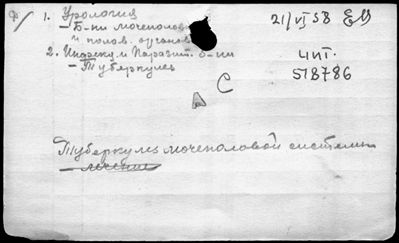 1. Урология
— Б-ни мочеполовы
и полов. органов
2. Инфекц. и Паразит. б-ни
— Туберкулез
21/VI 58
чит.
518786
С
Туберкулез мочеполовой системы
— лечение